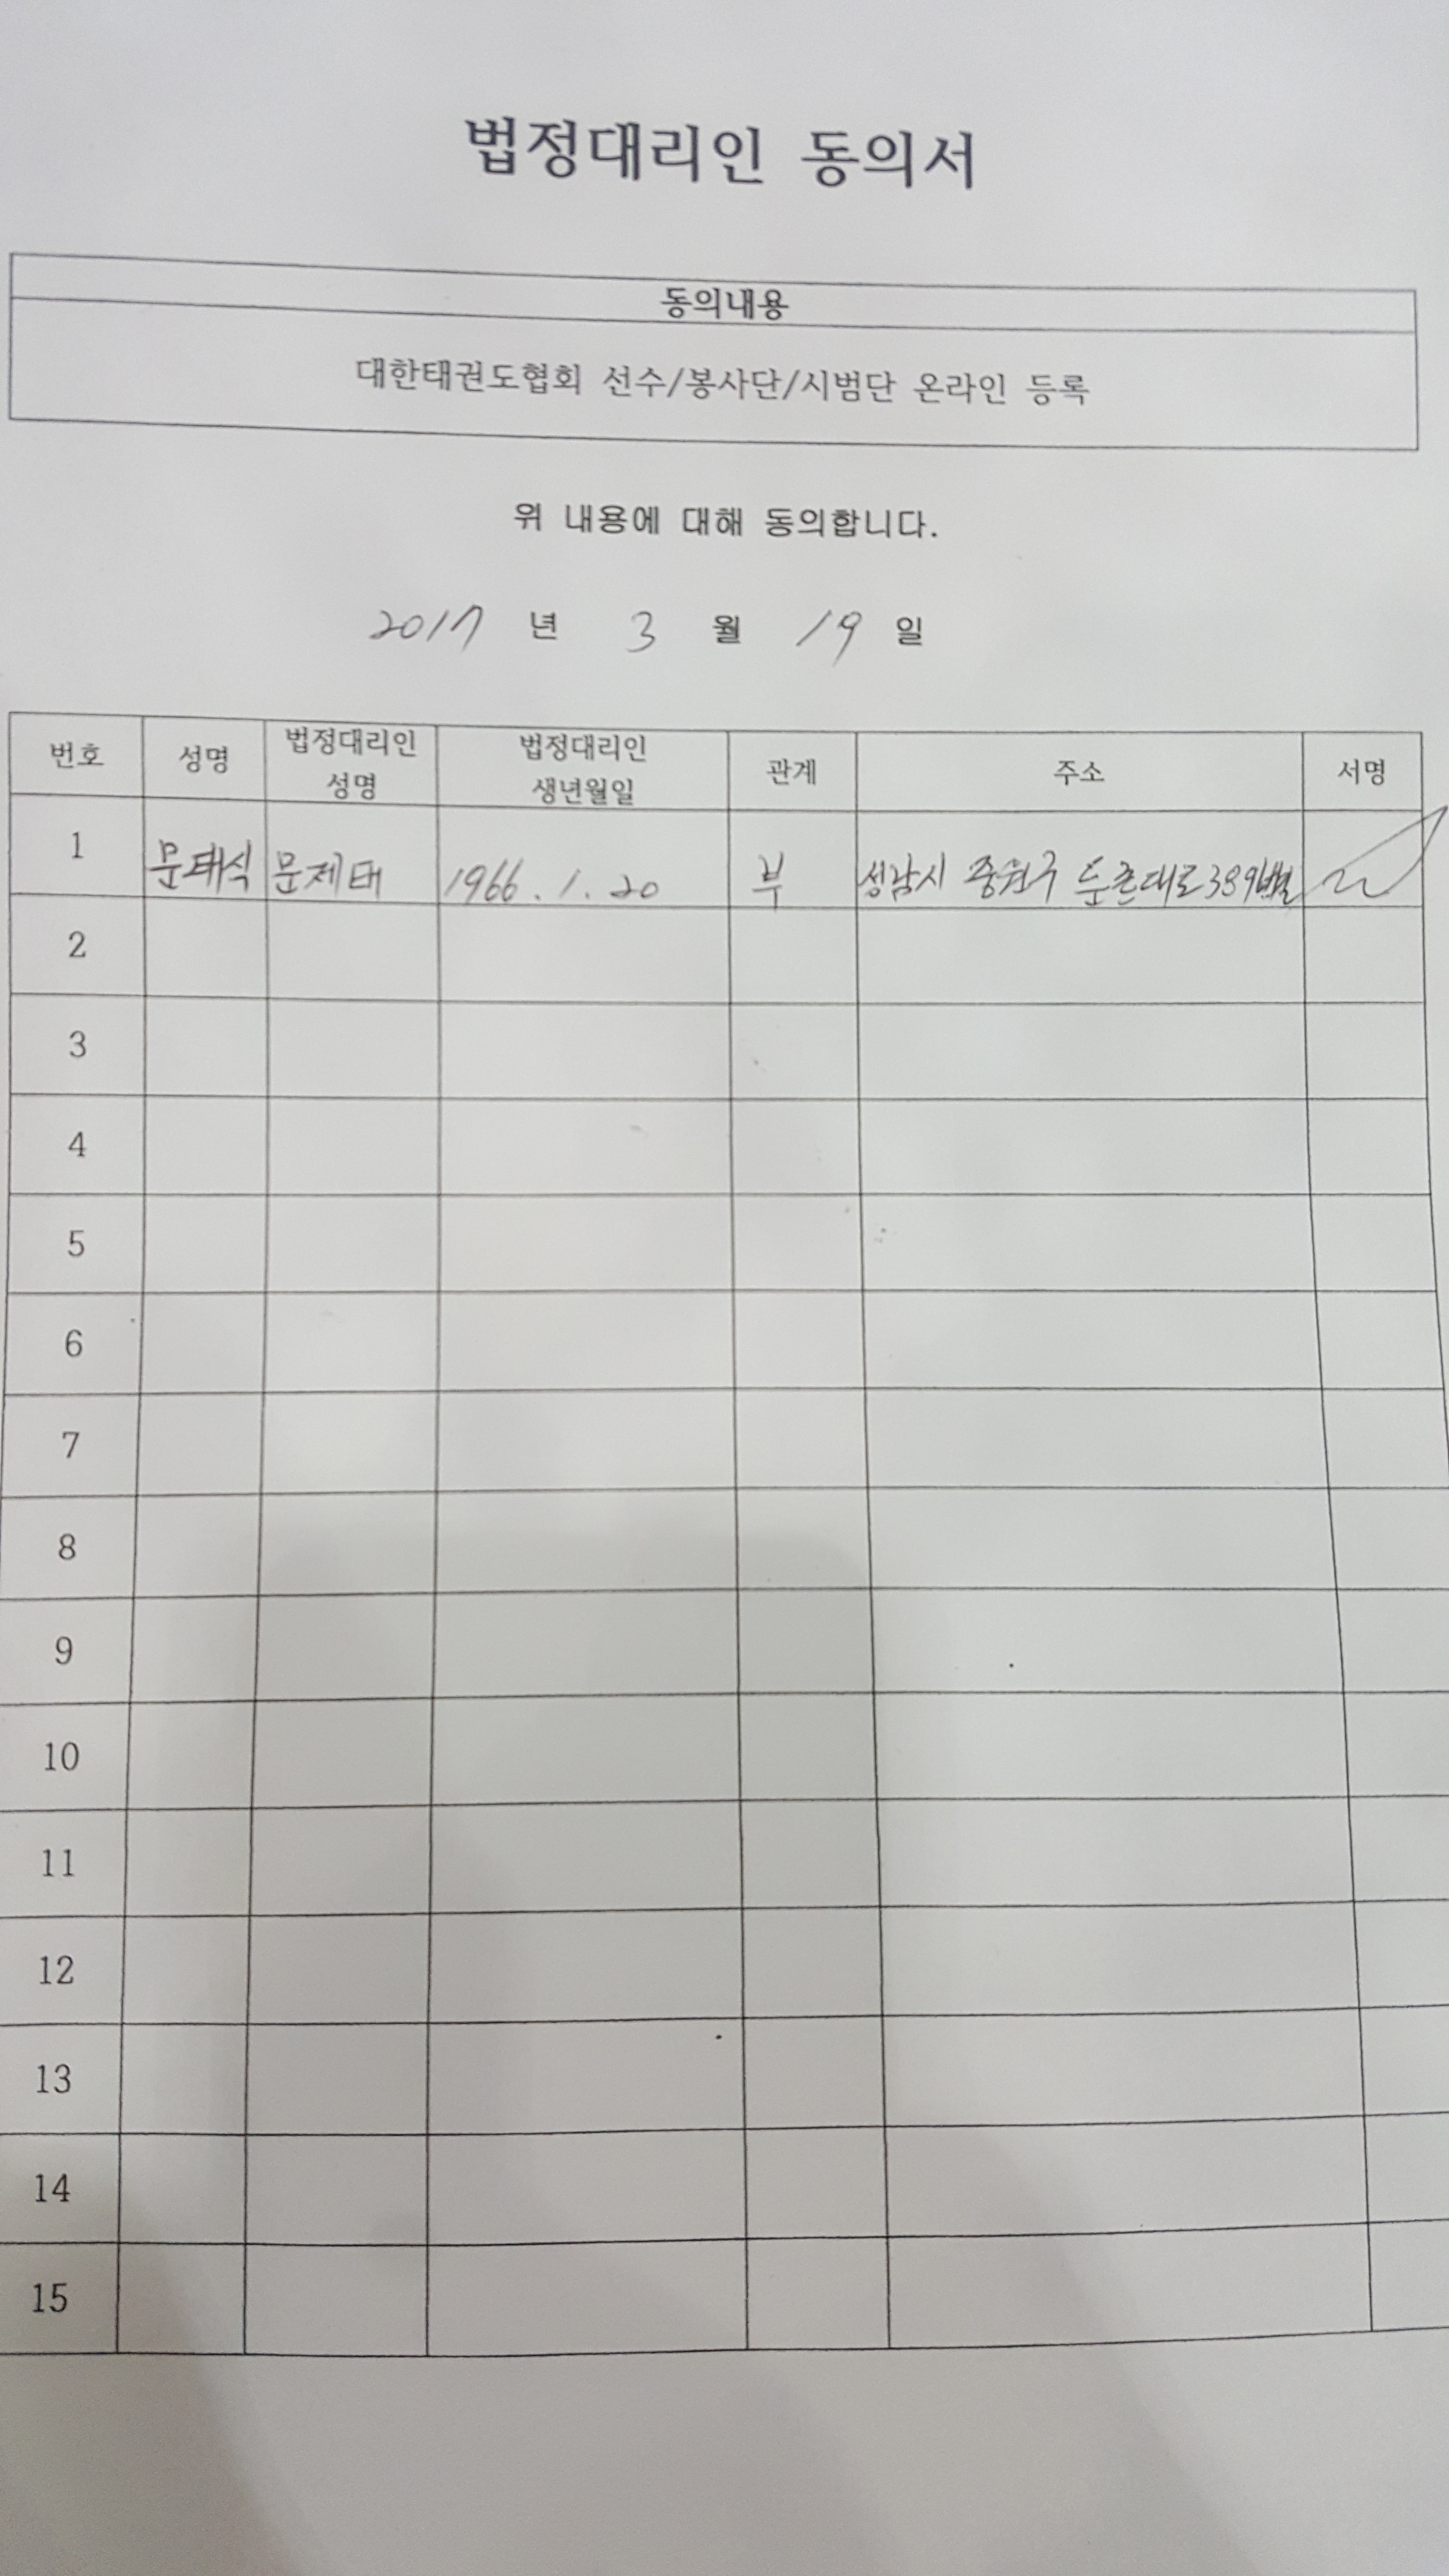 법정대리인 동의서
동의내용
대한태권도협회 선수/봉사단/시범단 온라인 등록
위 내용에 대해 동의합니다.
2017 년 3 월 19 일
번호 성명 법정대리인 성명 법정대리인 생년월일 관계 주소 서명
1 문태식 문제태 1966.1.20 부 성남시 중원구 둔촌대로389번길
2
3
4
5
6
7
8
9
10
11
12
13
14
15